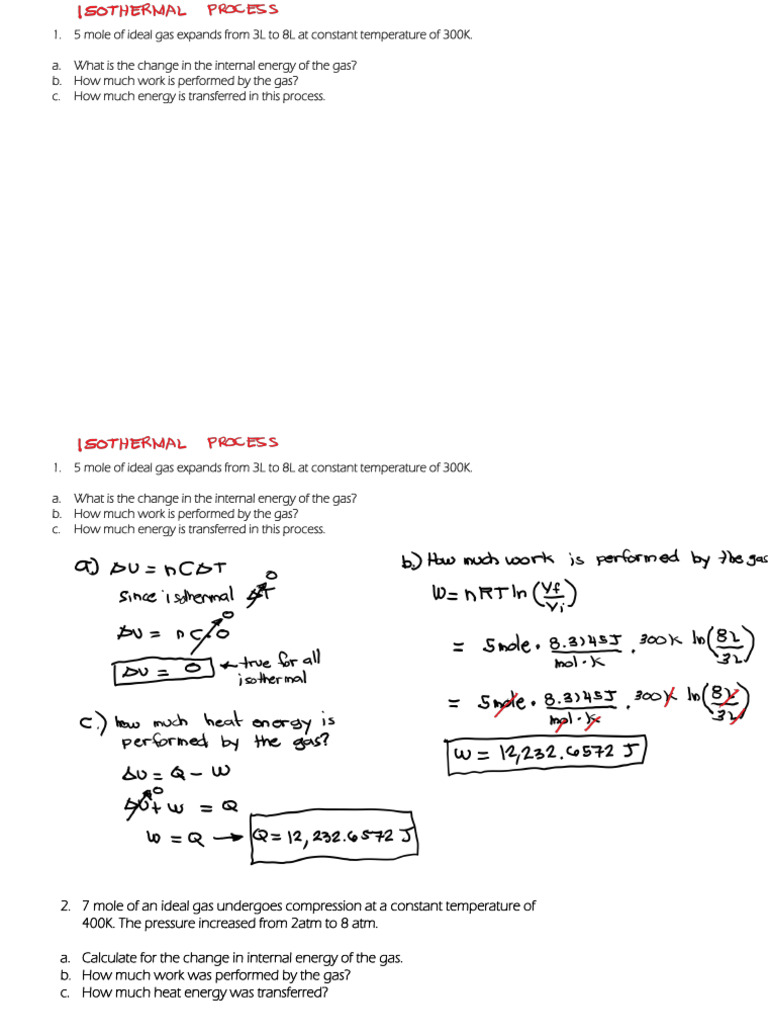 ISOTHERMAL PROCESS
1. 5 mole of ideal gas expands from 3L to 8L at constant temperature of 300K.
a. What is the change in the internal energy of the gas?
b. How much work is performed by the gas?
c. How much energy is transferred in this process.
ISOTHERMAL PROCESS
1. 5 mole of ideal gas expands from 3L to 8L at constant temperature of 300K.
a. What is the change in the internal energy of the gas?
b. How much work is performed by the gas?
c. How much energy is transferred in this process.
a.) ΔU = nCΔT
Since isothermal ΔT 0
ΔU = nC·0 0
ΔU = 0 ← true for all
isothermal
b.) How much work is performed by the gas
W = nRT ln (Vf/Vi)
= 5mole · 8.3145J/mol·K · 300K ln(8L/3L)
= 5mole · 8.3145J/mol·K · 300K ln(8L/3L)
W = 12,232.6572 J
c.) how much heat energy is
performed by the gas?
ΔU = Q - W
ΔU 0 + W = Q
W = Q → Q = 12,232.6572 J
2. 7 mole of an ideal gas undergoes compression at a constant temperature of
400K. The pressure increased from 2atm to 8 atm.
a. Calculate for the change in internal energy of the gas.
b. How much work was performed by the gas?
c. How much heat energy was transferred?